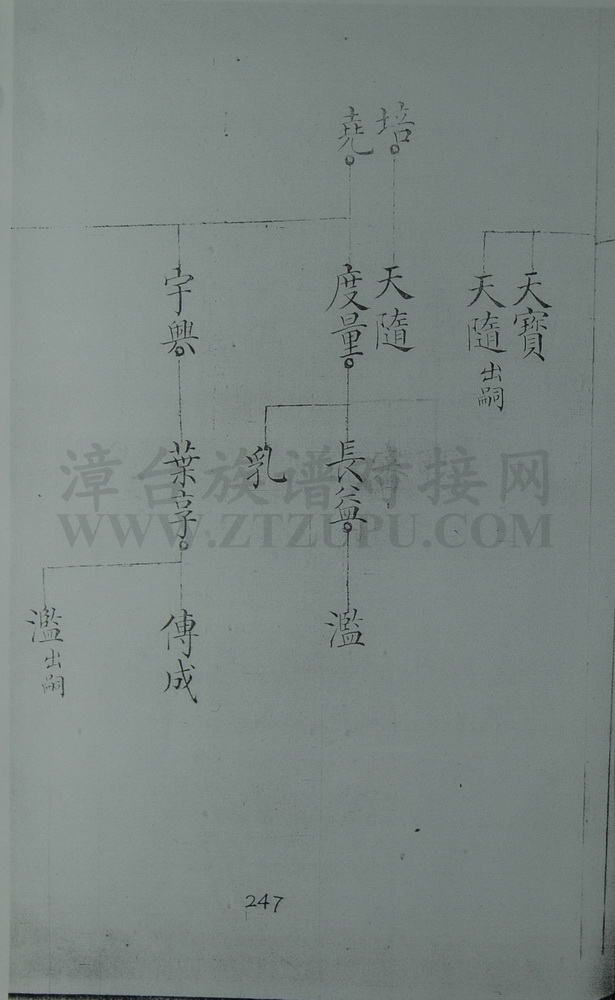 培
堯
天寶
天隨出嗣
天隨
度量
宇興
長益
乳
葉享
濫
傳成
濫出嗣
漳台族谱对接网
WWW.ZTZUPU.COM
247